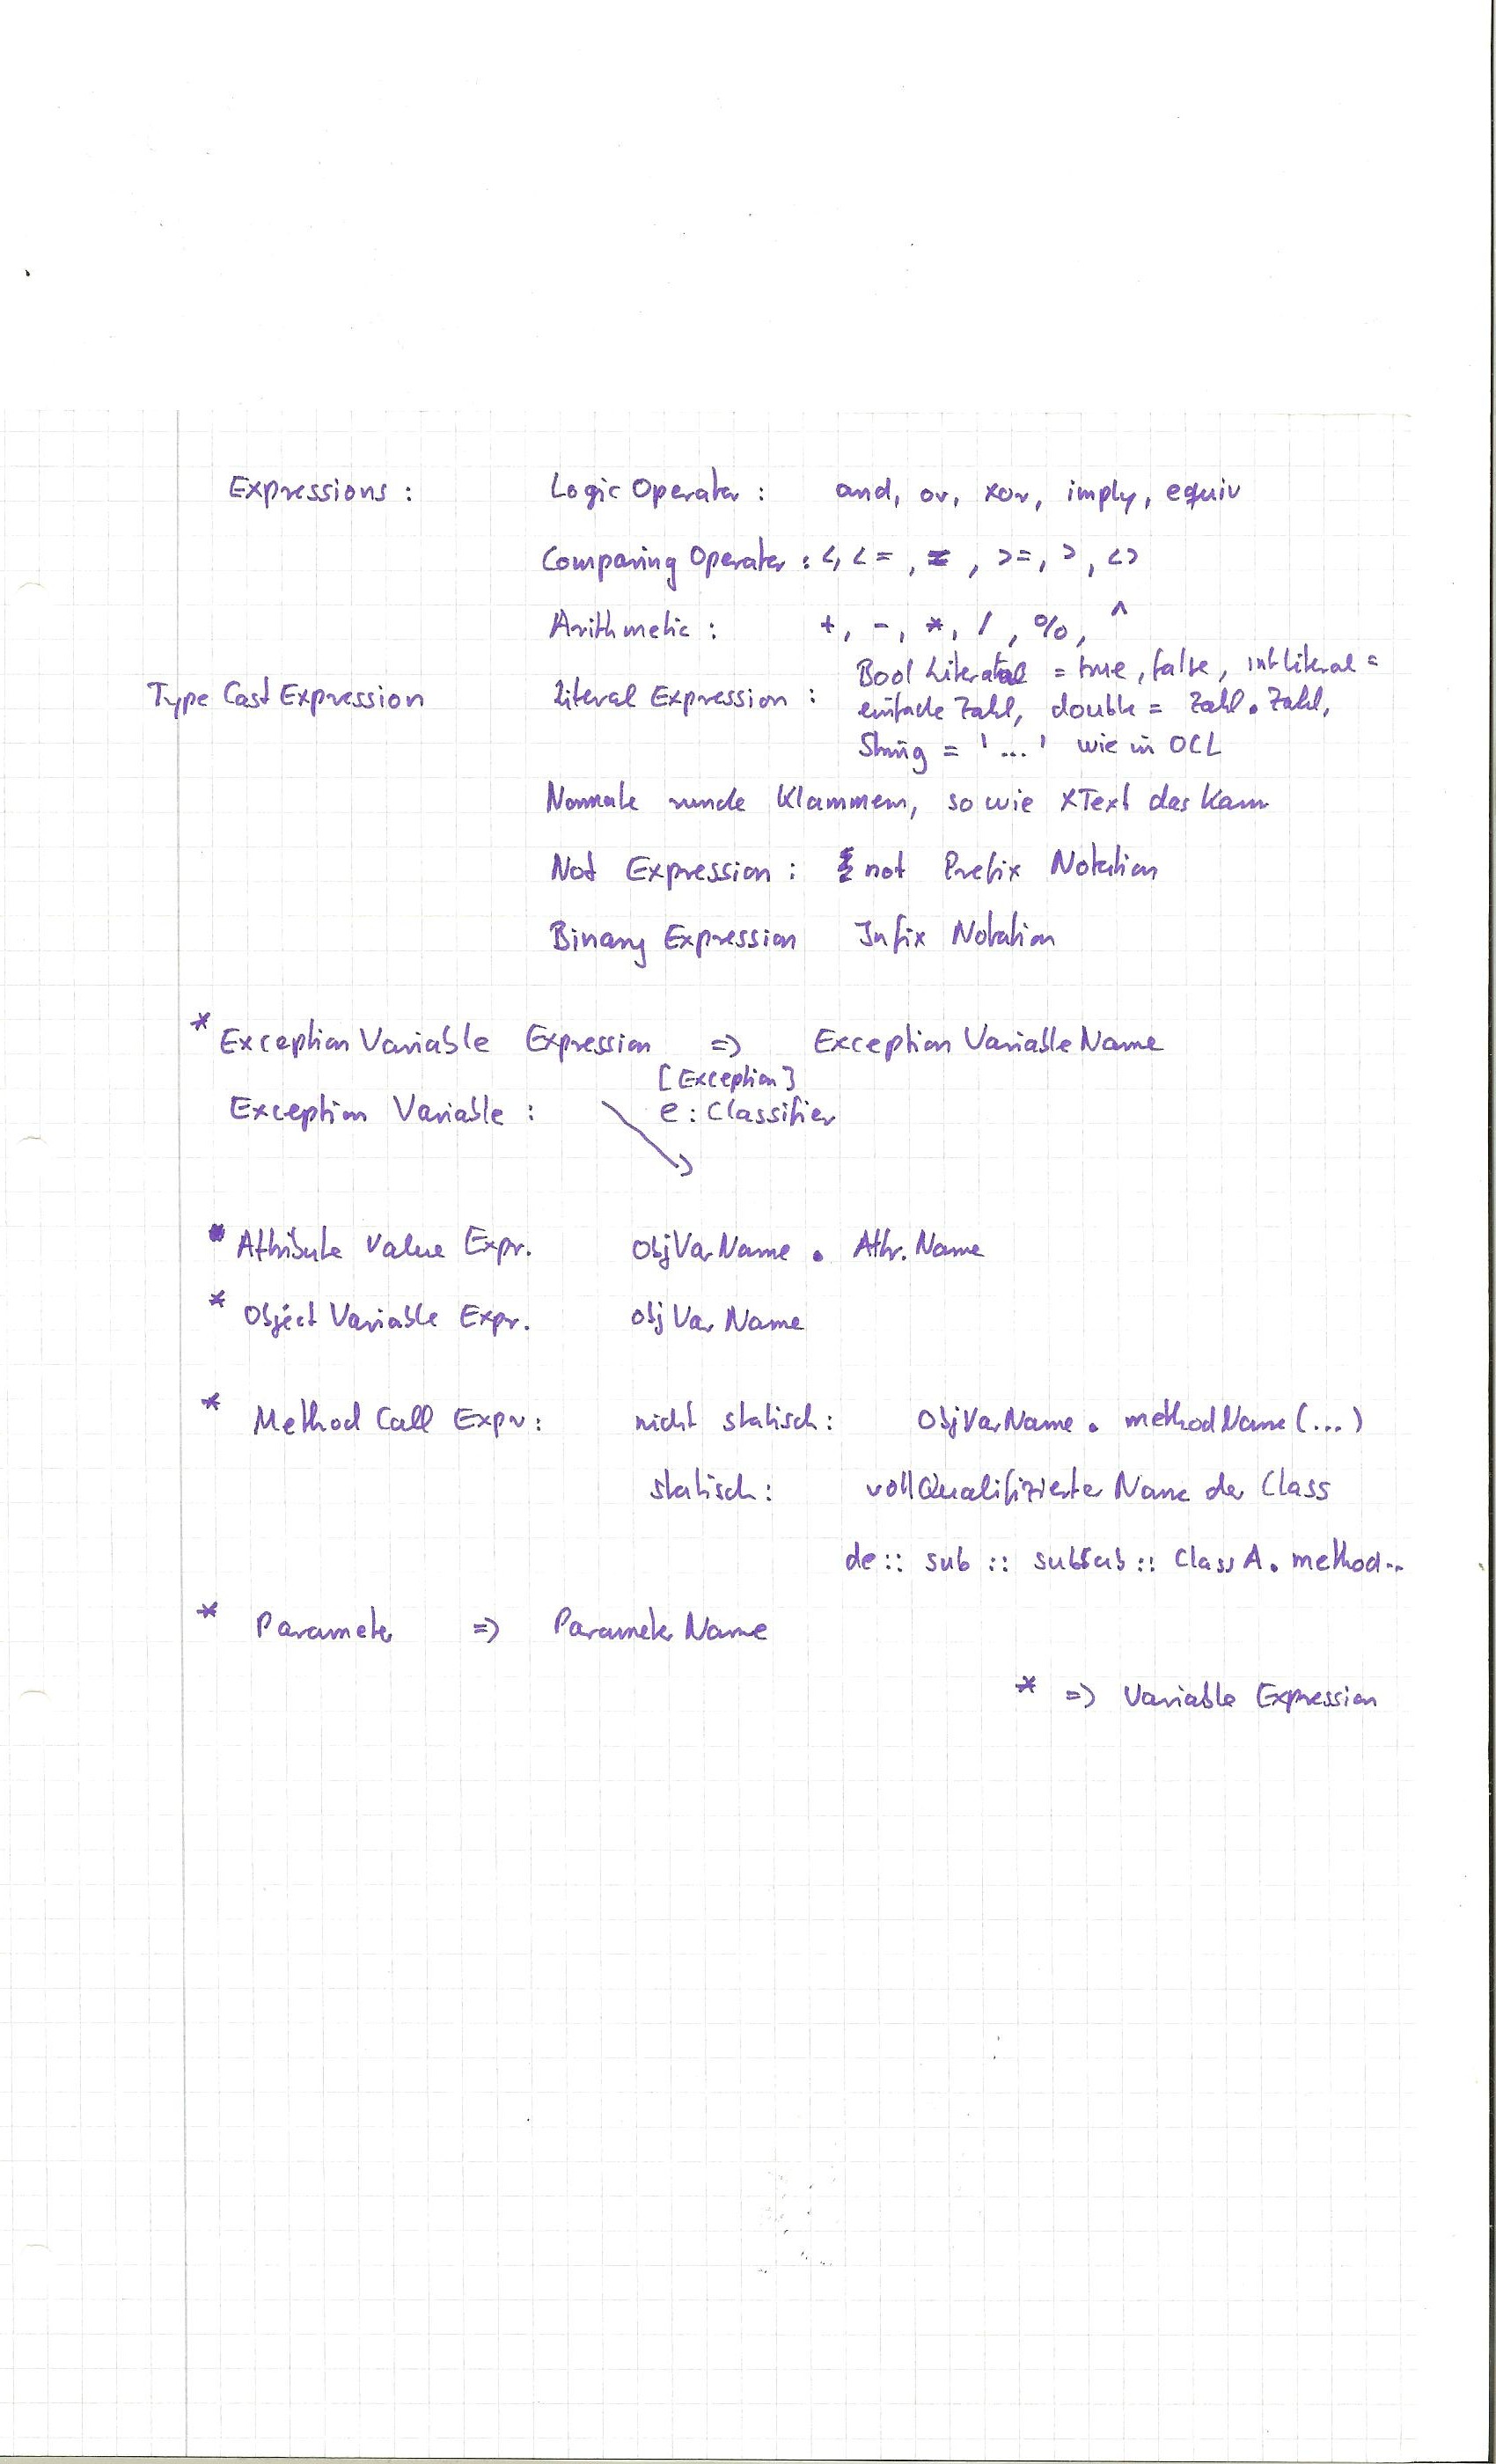 Expressions : Logic Operator : and, or, xor, imply, equiv
Comparing Operator : <, <= , = , >=, >, <>
Arithmetic : +, -, *, /, %, ^
Bool Literal = true, false, intLiteral =
Type Cast Expression Literal Expression : einfache Zahl, double = Zahl . Zahl,
String = '...' wie in OCL
Normale runde Klammern, so wie XText das kann
Not Expression : not Prefix Notation
Binary Expression Infix Notation
* Exception Variable Expression => Exception Variable Name
[Exception]
Exception Variable : e : Classifier
* Attribute Value Expr. ObjVarName . Attr. Name
* Object Variable Expr. objVarName
* Method Call Expr : nicht statisch : ObjVarName . methodName (...)
statisch : vollQualifizierter Name der Class
de :: sub :: subsub :: Class A . method..
* Parameter => Parameter Name
* => Variable Expression